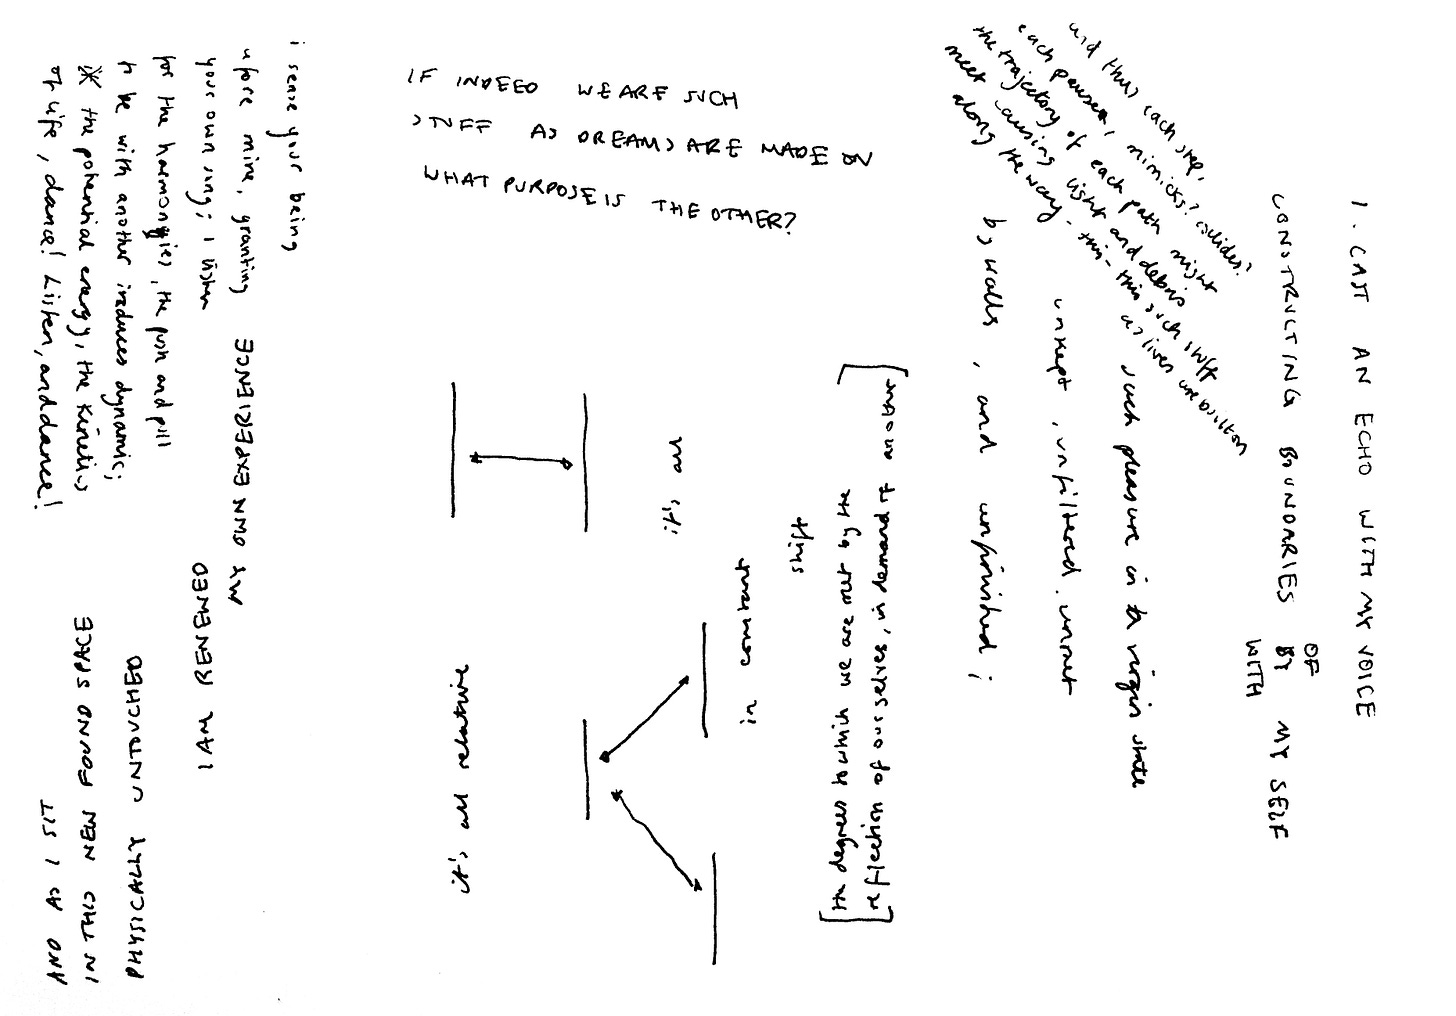 1. CAST AN ECHO WITH MY VOICE
CONSTRUCTING BOUNDARIES BY MY SELF
OF
WITH
such pleasure in virgin state
unkept, unfiltered unmet
by walls, and unfinished;
and thus each step,
each pause, mimicks? collides?
the trajectory of each path might
meet causing light and debris
along the way - this - this such stuff
as lives are built on
IF INDEED WE ARE SUCH
STUFF AS DREAMS ARE MADE ON
WHAT PURPOSE IS THE OTHER?
[the degrees to which we are met by the
reflection of ourselves, in demand of another]
it's all
in constant
shift
it's all relative
i sense your being
before mine, granting
your own song; I listen
for the harmon(y)ies, the push and pull
to be with another induces dynamic;
* the potential energy, the kinetics
of life, dance! Listen, and dance!
AND AS I SIT
IN THIS NEW FOUND SPACE
PHYSICALLY UNTOUCHED
I AM RENEWED
MY OWN EXPERIENCE